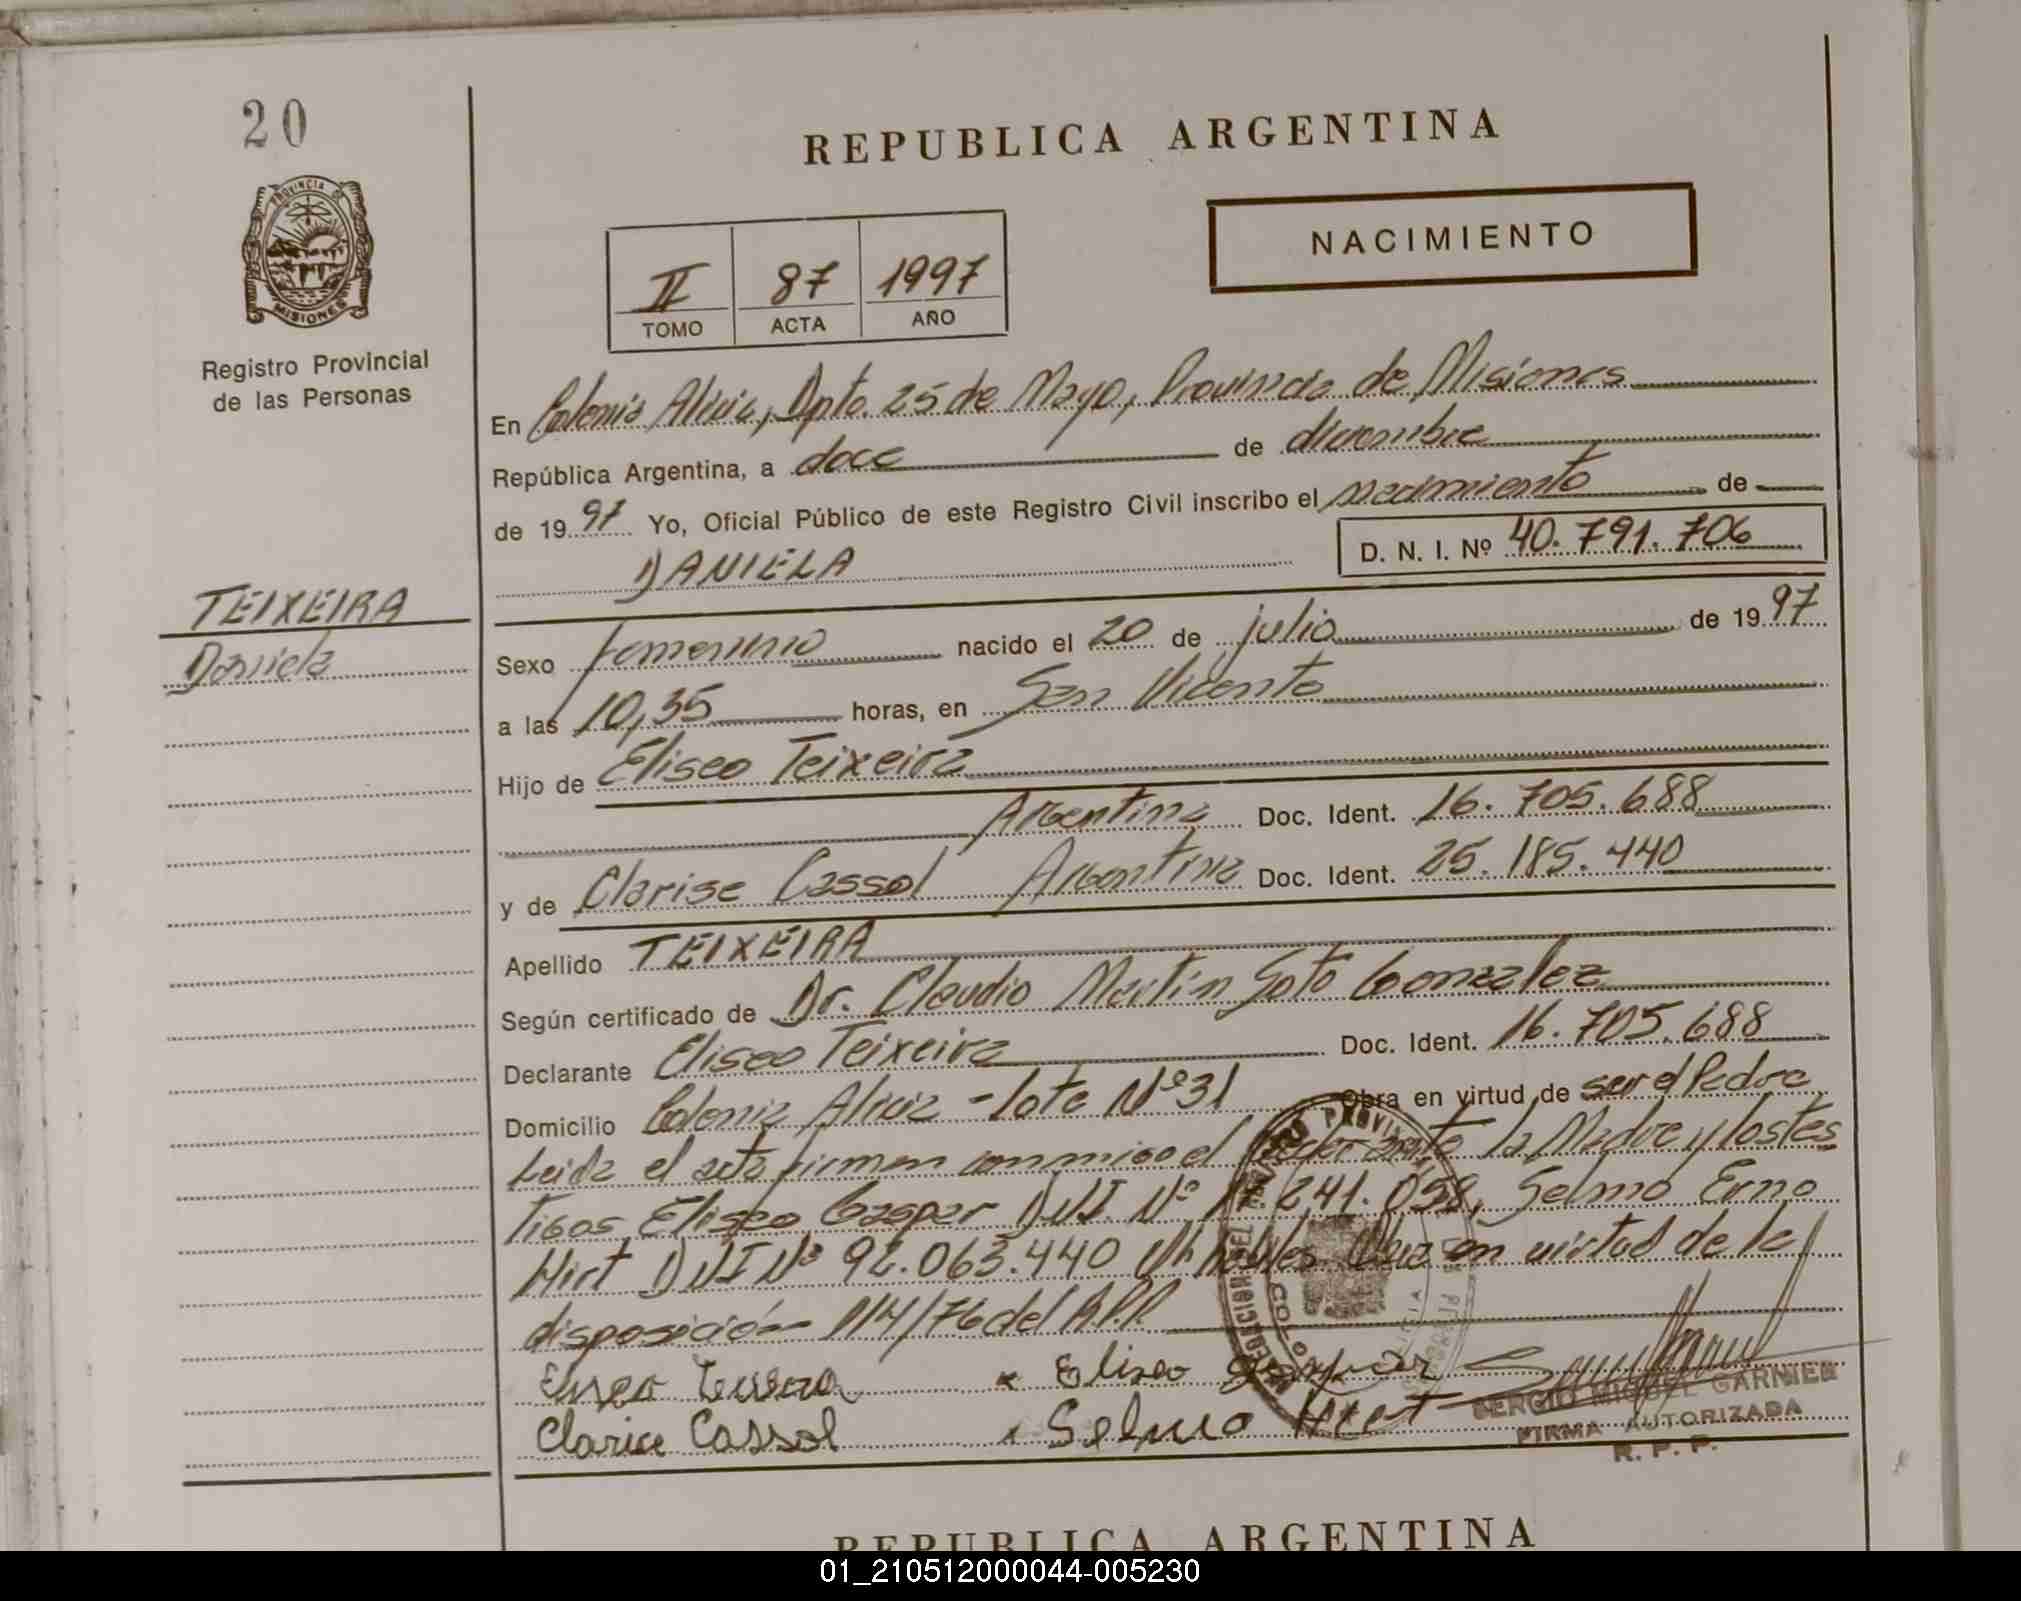 20
PROVINCIA DE
MISIONES
Registro Provincial
de las Personas
TEIXEIRA
Daniela
REPUBLICA ARGENTINA
NACIMIENTO
II 87 1997
TOMO ACTA AÑO
En Colonia Alicia, Dpto. 25 de Mayo, Provincia de Misiones
República Argentina, a doce de diciembre
de 1997 Yo, Oficial Público de este Registro Civil inscribo el nacimiento de
DANIELA D. N. I. Nº 40.791.706
Sexo femenino nacido el 20 de julio de 1997
a las 10,35 horas, en San Vicente
Hijo de Eliseo Teixeira
Argentina Doc. Ident. 16.705.688
y de Clarise Cassol Argentina Doc. Ident. 25.185.440
Apellido TEIXEIRA
Según certificado de Dr. Claudio Martín Soto Gonzalez
Declarante Eliseo Teixeira Doc. Ident. 16.705.688
Domicilio Colonia Alicia - Lote Nº 31 Obra en virtud de ser el Padre
Leida el acta firman conmigo el declarante la Madre y los tes
tigos Eliseo Gasper DNI. Nº 17.241.058, Selmo Erno
Hirt DNI Nº 92.063.440 Obra en virtud de la
disposición 114/76 del R.P.P.
Eliseo Gasper
Clarice Cassol Selmo Hirt
SERGIO MIGUEL GARNIER
FIRMA AUTORIZADA
R. P. P.
REPUBLICA ARGENTINA
01_210512000044-005230